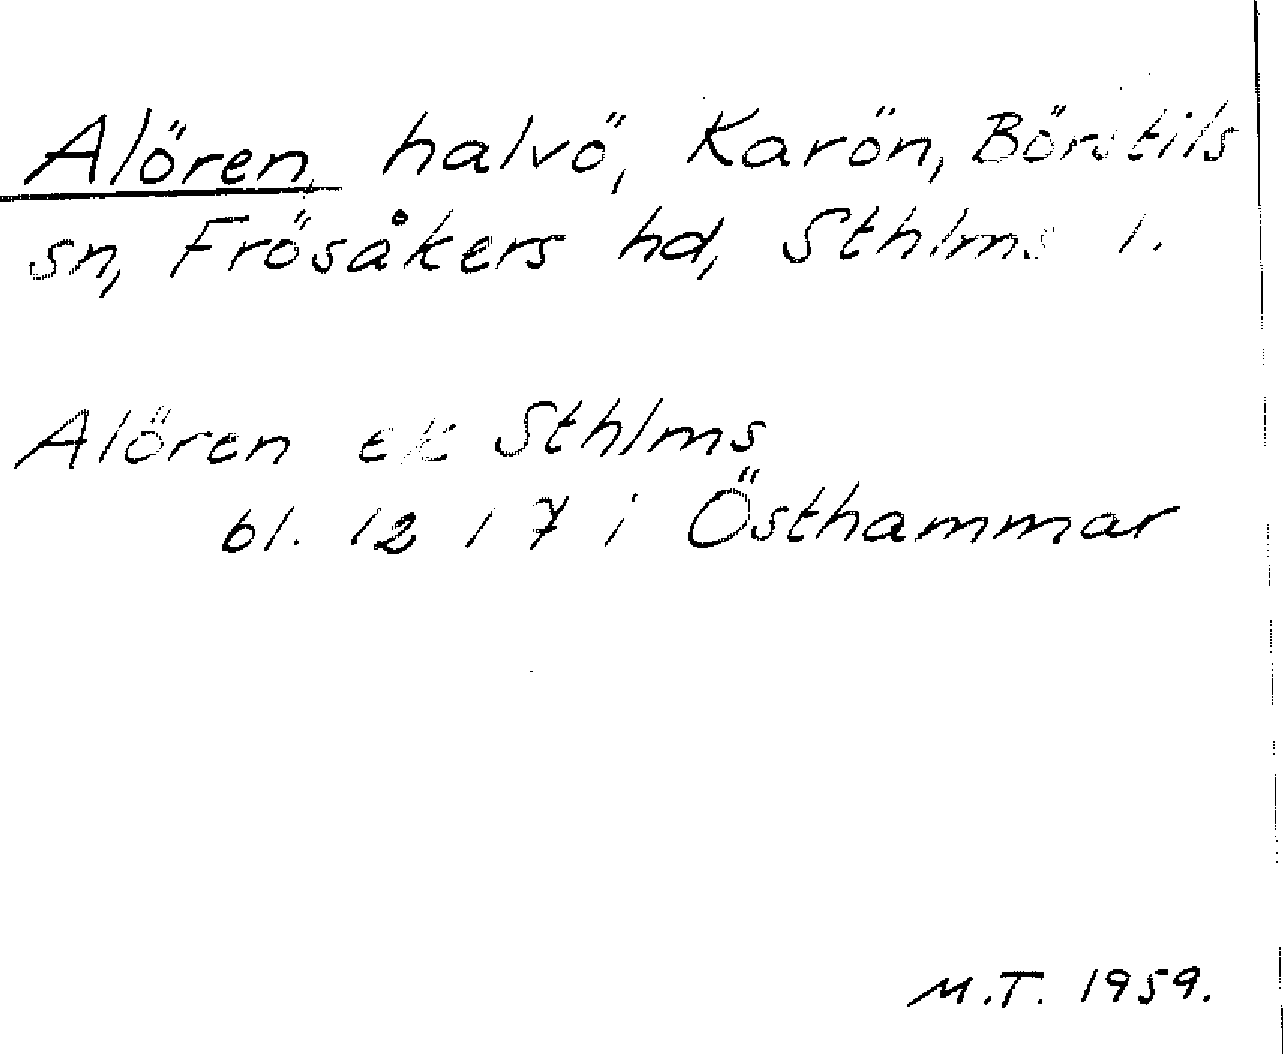 Alören, halvö, Karön, Börstils
sn, Frösåkers hd, Sthlms l.
Alören ek Sthlms
bl. 12 I 7 i Östhammar
M.T. 1959.